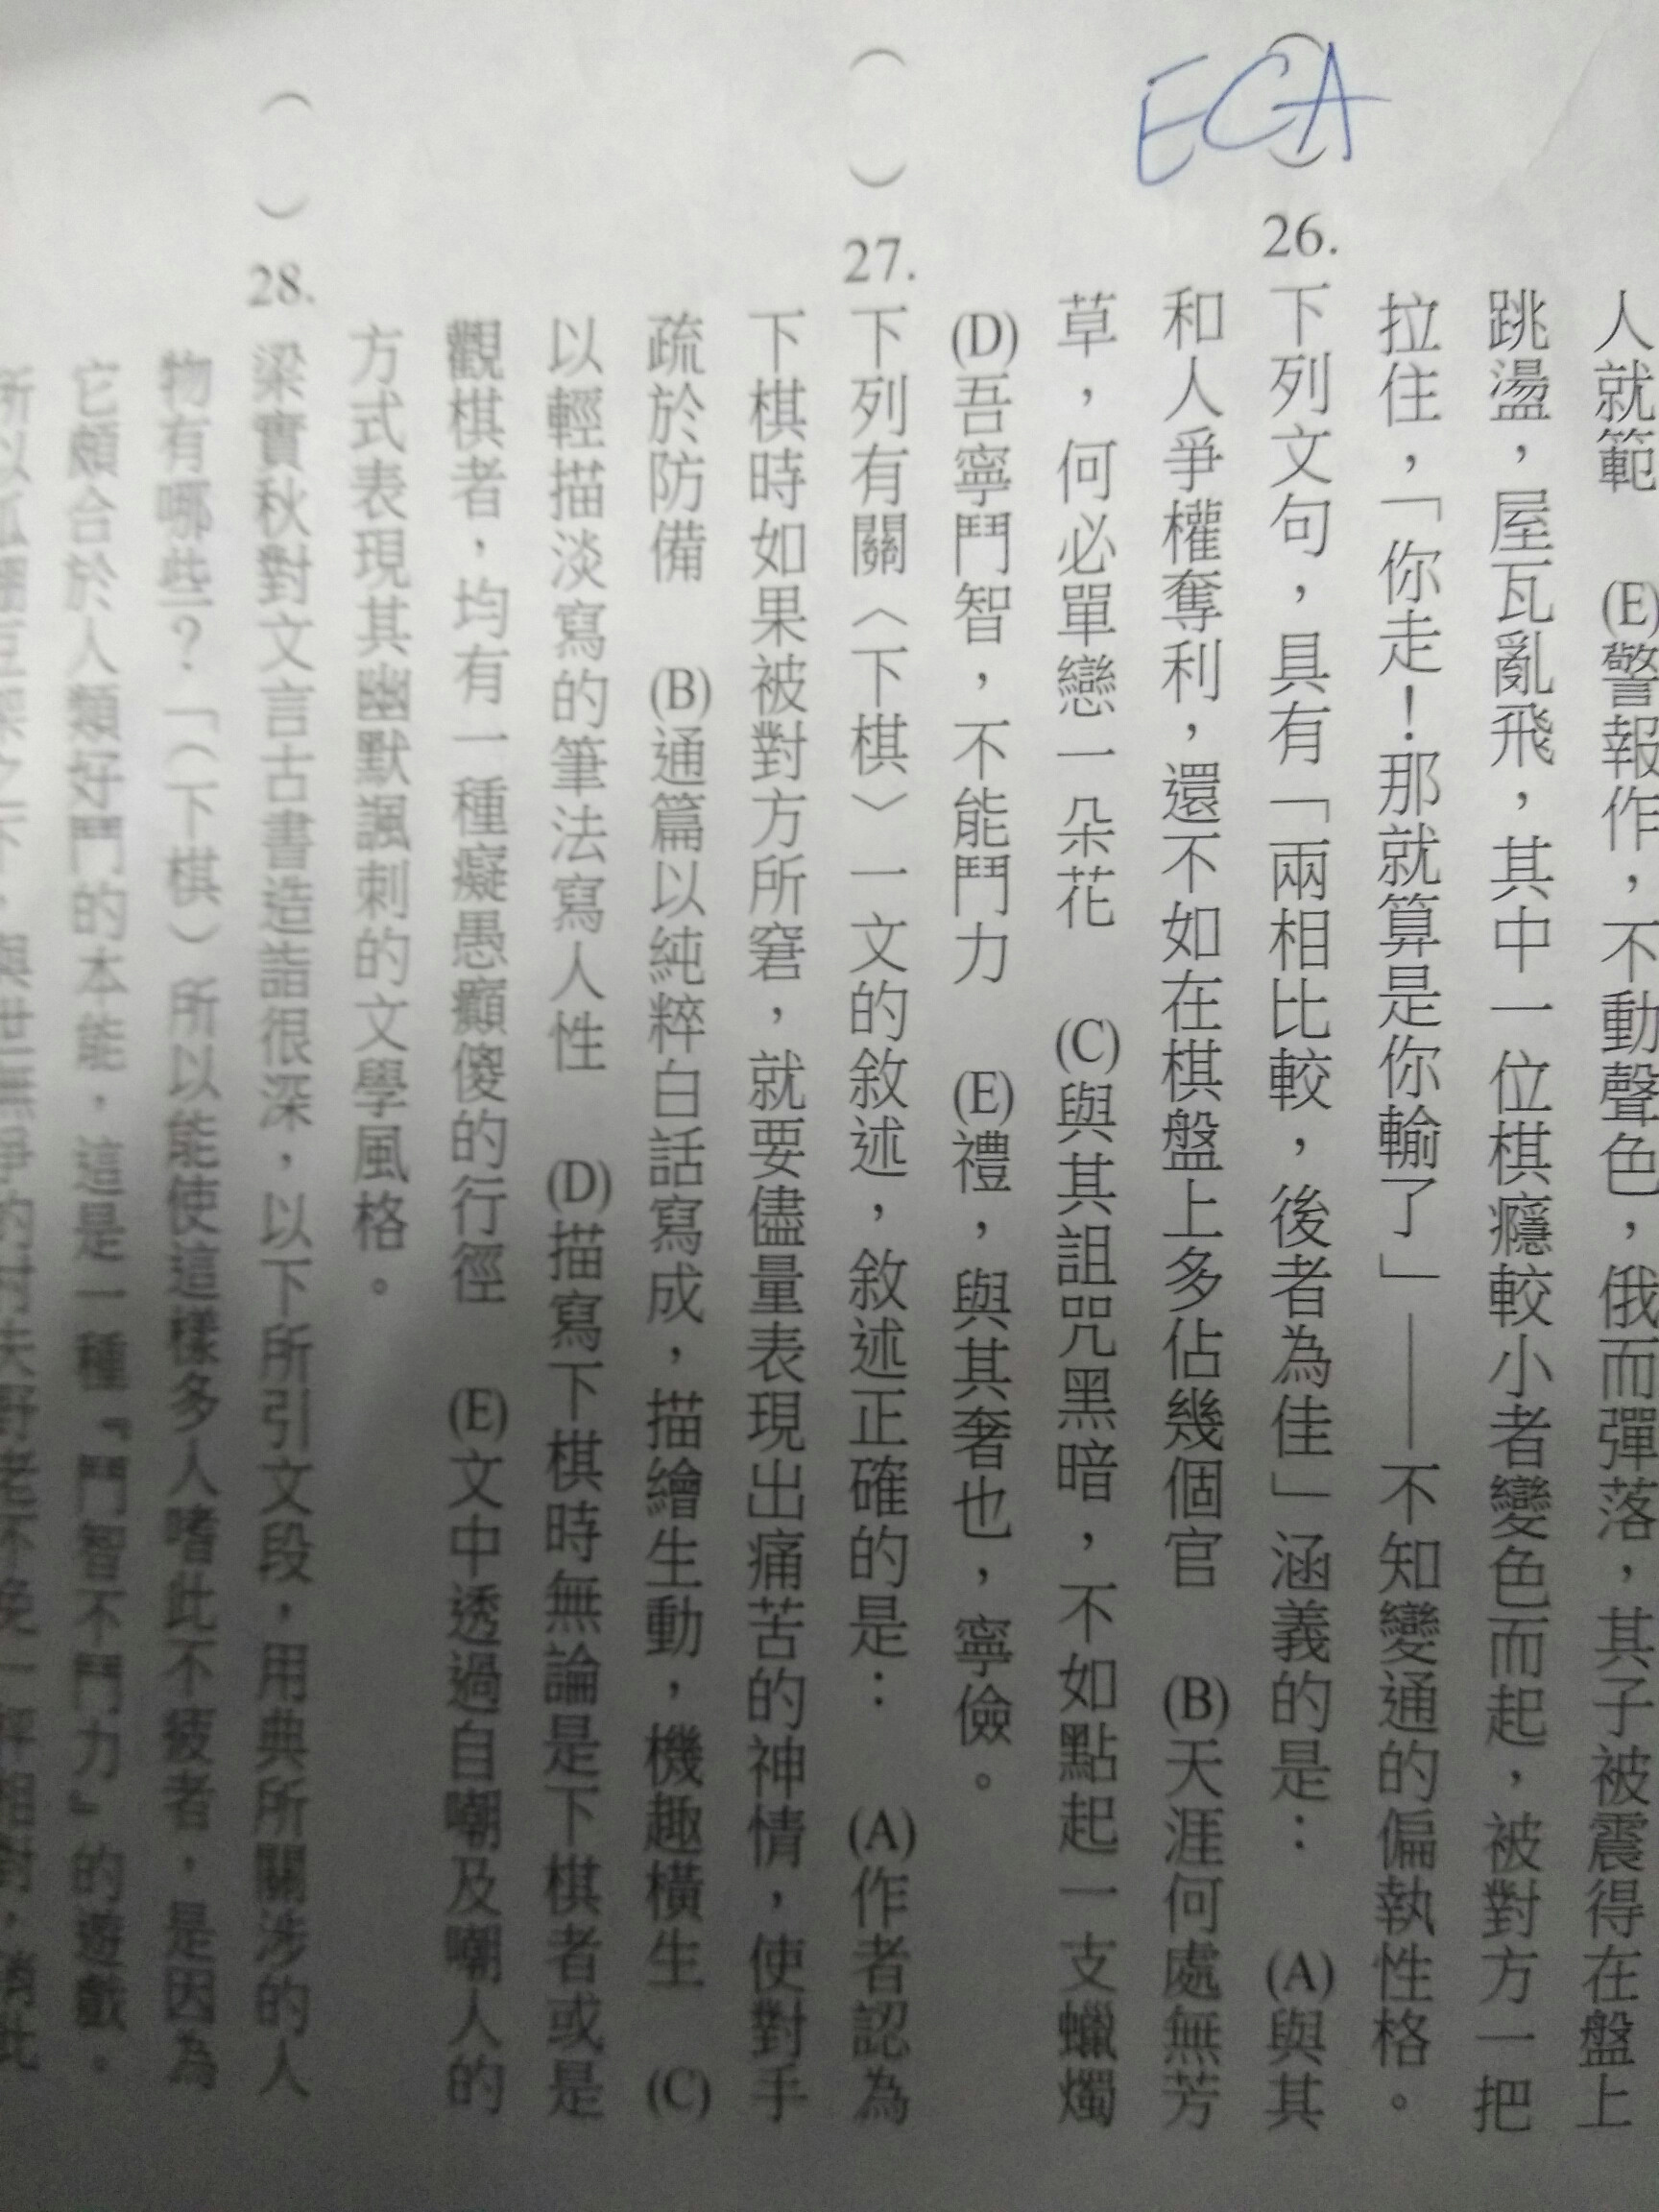 人就範　(E)警報作，不動聲色，俄而彈落，其子被震得在盤上
跳盪，屋瓦亂飛，其中一位棋癮較小者變色而起，被對方一把
拉住，「你走！那就算是你輸了」——不知變通的偏執性格。
ECA
(　) 26. 下列文句，具有「兩相比較，後者為佳」涵義的是：　(A)與其
和人爭權奪利，還不如在棋盤上多佔幾個官　(B)天涯何處無芳
草，何必單戀一朵花　(C)與其詛咒黑暗，不如點起一支蠟燭
(D)吾寧鬥智，不能鬥力　(E)禮，與其奢也，寧儉。
(　) 27. 下列有關〈下棋〉一文的敘述，敘述正確的是：　(A)作者認為
下棋時如果被對方所窘，就要儘量表現出痛苦的神情，使對手
疏於防備　(B)通篇以純粹白話寫成，描繪生動，機趣橫生　(C)
以輕描淡寫的筆法寫人性　(D)描寫下棋時無論是下棋者或是
觀棋者，均有一種癡愚癲傻的行徑　(E)文中透過自嘲及嘲人的
方式表現其幽默諷刺的文學風格。
(　) 28. 梁實秋對文言古書造詣很深，以下所引文段，用典所關涉的人
物有哪些？「（下棋）所以能使這樣多人嗜此不疲者，是因為
它頗合於人類好鬥的本能，這是一種『鬥智不鬥力』的遊戲。
所以瓜棚豆架之下，與世無爭的村夫野老不免一枰相對，消此